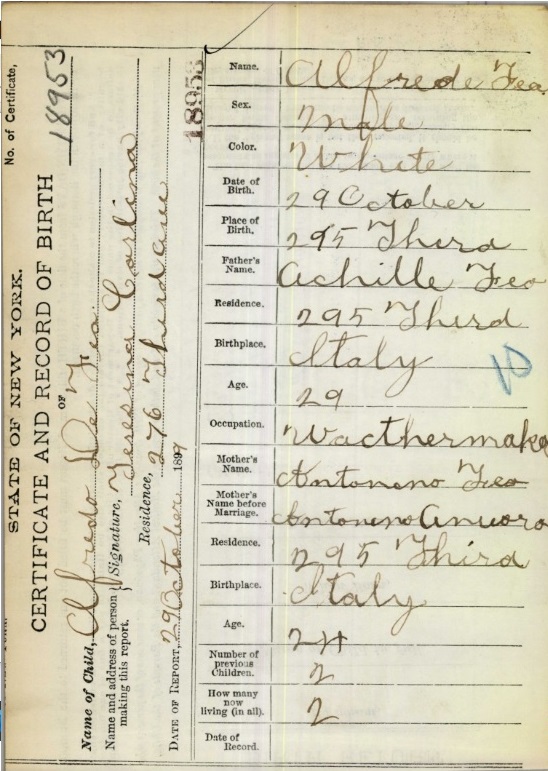 STATE OF NEW YORK.
No. of Certificate,
CERTIFICATE AND RECORD OF BIRTH
18953
OF
Name of Child, Alfredo De Feo
Name and address of person making this report, } Signature, Teresina Corlino
Residence, 276 Third ave
DATE OF REPORT, 29 October 1897
18953
Name. Alfrede Feo
Sex. Male
Color. White
Date of Birth. 29 October
Place of Birth, 295 Third
Father's Name. Achille Feo
Residence. 295 Third
Birthplace. Italy
Age. 29
Occupation. Wacthermake
Mother's Name. Antonino Feo
Mother's Name before Marriage. Antonino
Residence. 295 Third
Birthplace. Italy
Age. 24
Number of previous Children. 2
How many now living (in all). 2
Date of Record.